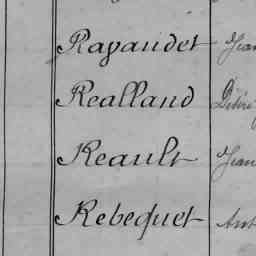 Ravaudet Jean
Realland
Reault Jean
Rebequet Ant